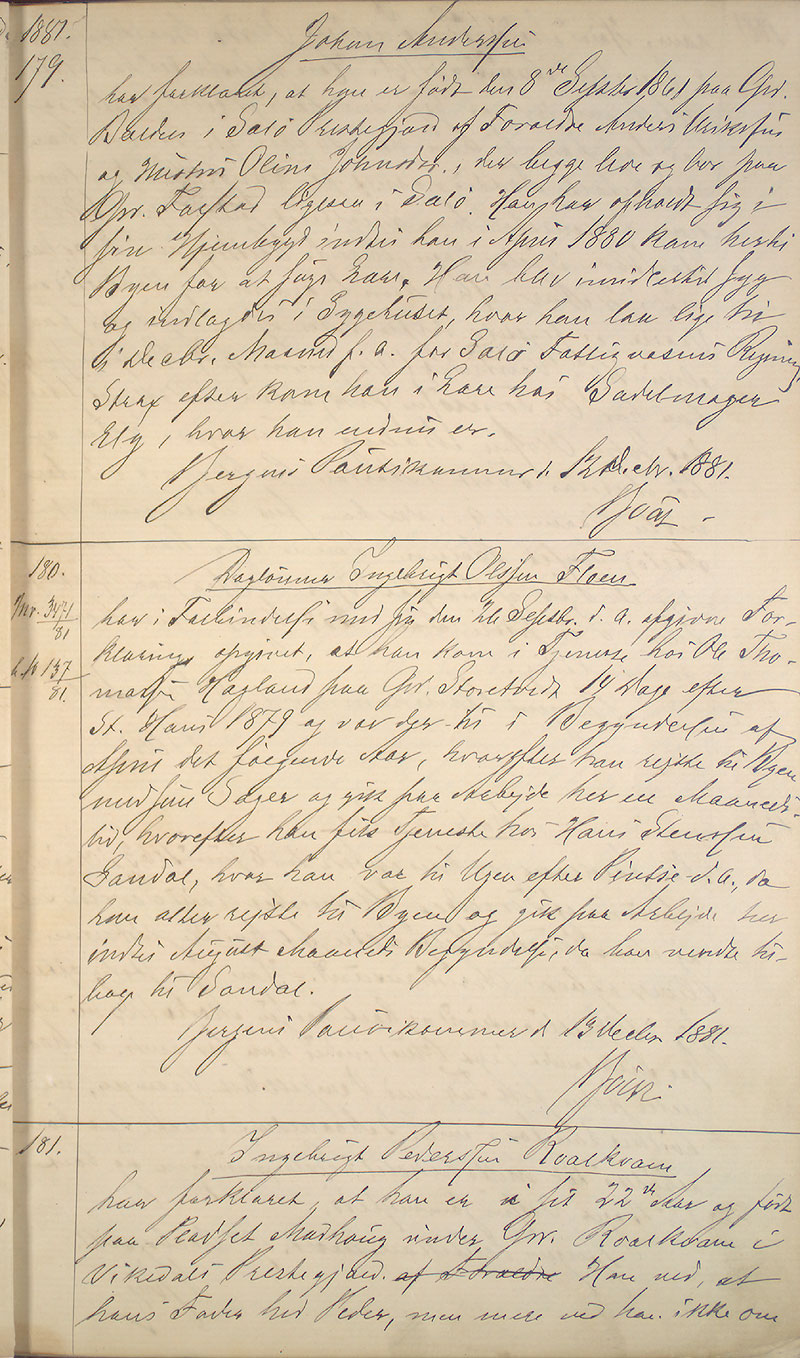 1881.
179.
Johan Anderssen
har forklaret, at han er født den 8de Septbr 1861 paa Grd.
i Sælø Prestegjæld af Forældre Anders
og Hustru Oline Johnsdr., der begge leve og bor paa
Grd. Farstad ligesaa i Sælø. Han har opholdt sig i
sin Hjembygd indtil han i April 1880 kom hertil
Byen for at søge Lære. Han blev imidlertid syg
og indlagdes i Sygehuset, hvor han laa lige til
i Decbr. Maaned f. a. for Sælø Fattigvæsens Regning,
Strax efter kom han i Lære hos Sadelmager
Ely, hvor han endnu er.
Bergens Politikammer d. 12 Decbr. 1881.
180.
Jnr. 3471/81
137/81.
Daglønner Ingebrigt Olssen Floen
har i Forbindelse med sin den 26 Septbr. d. a. afgivne For-
klaring opgivet, at han kom i Tjeneste hos Ole Tho-
massen Hagland paa Grd. Storetvedt 14 Dage efter
St. Hans 1879 og var der til i Begyndelsen af
April det følgende Aar, hvorefter han rejste til Byen
med sine Sager og gik paa Arbejde her en Maaneds-
tid, hvorefter han fik Tjeneste hos Hans Stenssen
Sandal, hvor han var til Ugen efter Pintse d. a., da
han atter rejste til Byen og gik paa Arbejde her
indtil August Maaneds Begyndelse, da han vendte til-
bage til Sandal.
Bergens Politikammer d 13 Decbr 1881.
181.
Ingebrigt Pederssen Roalkvam
har forklaret, at han er i sit 22de Aar og født
paa Pladset Madhoug under Grd. Roalkvam i
Vikedals Prestegjæld. af Forældre Han ved, at
hans Fader hed Peder, men mere ved han ikke om